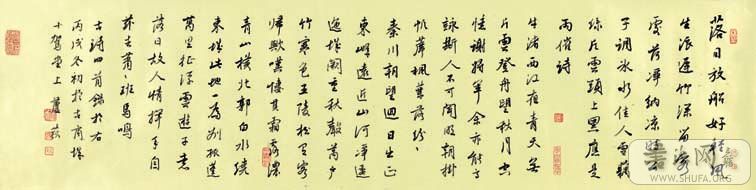 落日放船好輕風
生浪遲竹深留客
處荷淨納涼時公
子調冰水佳人雪藕
絲片雲頭上黑應是
雨催詩
牛渚西江夜青天無
片雲登舟望秋月空
憶謝將軍余亦能高
詠斯人不可聞明朝掛
帆席楓葉落紛紛
秦川朝望迥日出正
東峰遠近山河淨逶
迤城闕重秋聲萬戶
竹寒色五陵松客有
歸歟嘆悽其霜露濃
青山橫北郭白水繞
東城此地一為別孤蓬
萬里征浮雲遊子意
落日故人情揮手自
茲去蕭々班馬鳴
古詩四首錄於右
丙戌冬初於古商城
十駕堂上
WWW.SHUFA.ORG